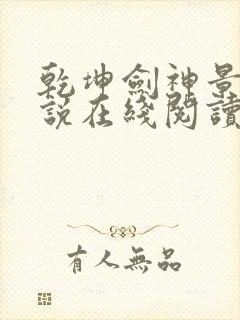 乾坤劍神景
說在綫閱讀
有人無品